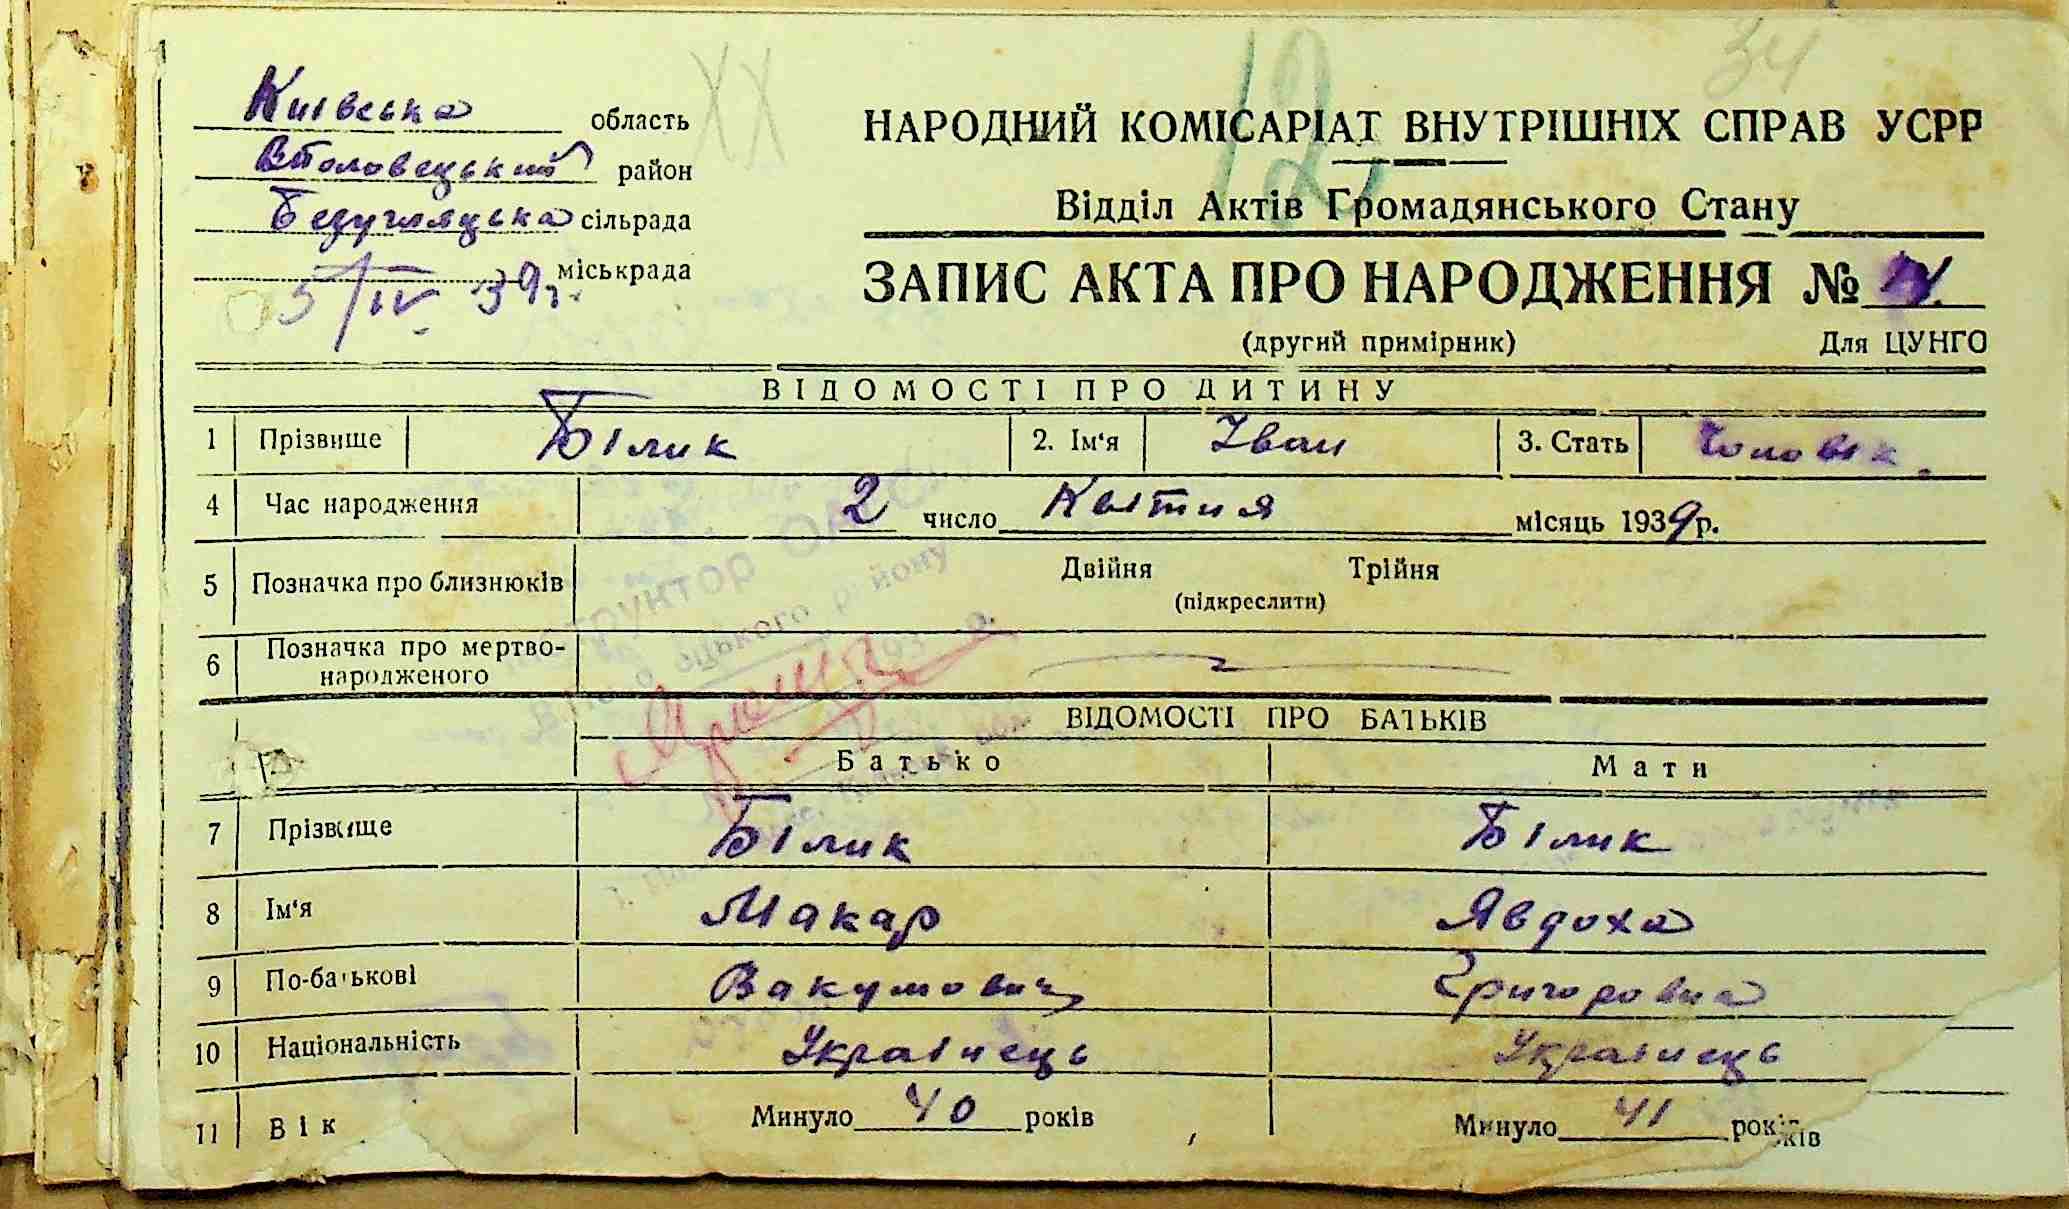 34
Київська область
ХХ
12
В Половецький район
Безугляцька сільрада
міськрада
5/IV 39 г.
НАРОДНИЙ КОМІСАРІАТ ВНУТРІШНІХ СПРАВ УСРР
Відділ Актів Громадянського Стану
ЗАПИС АКТА ПРО НАРОДЖЕННЯ №
(другий примірник) Для ЦУНГО
ВІДОМОСТІ ПРО ДИТИНУ
1 Прізвище Білик 2. Ім'я Іван 3. Стать Чоловік.
4 Час народження 2 число Квітня місяць 1939 р.
5 Позначка про близнюків Двійня Трійня
(підкреслити)
6 Позначка про мертво-
народженого
ВІДОМОСТІ ПРО БАТЬКІВ
Батько Мати
7 Прізвище Білик Білик
8 Ім'я Макар Явдоха
9 По-батькові Вакумович Григоровна
10 Національність Украінець Украінець
11 Вік Минуло 40 років Минуло 41 років